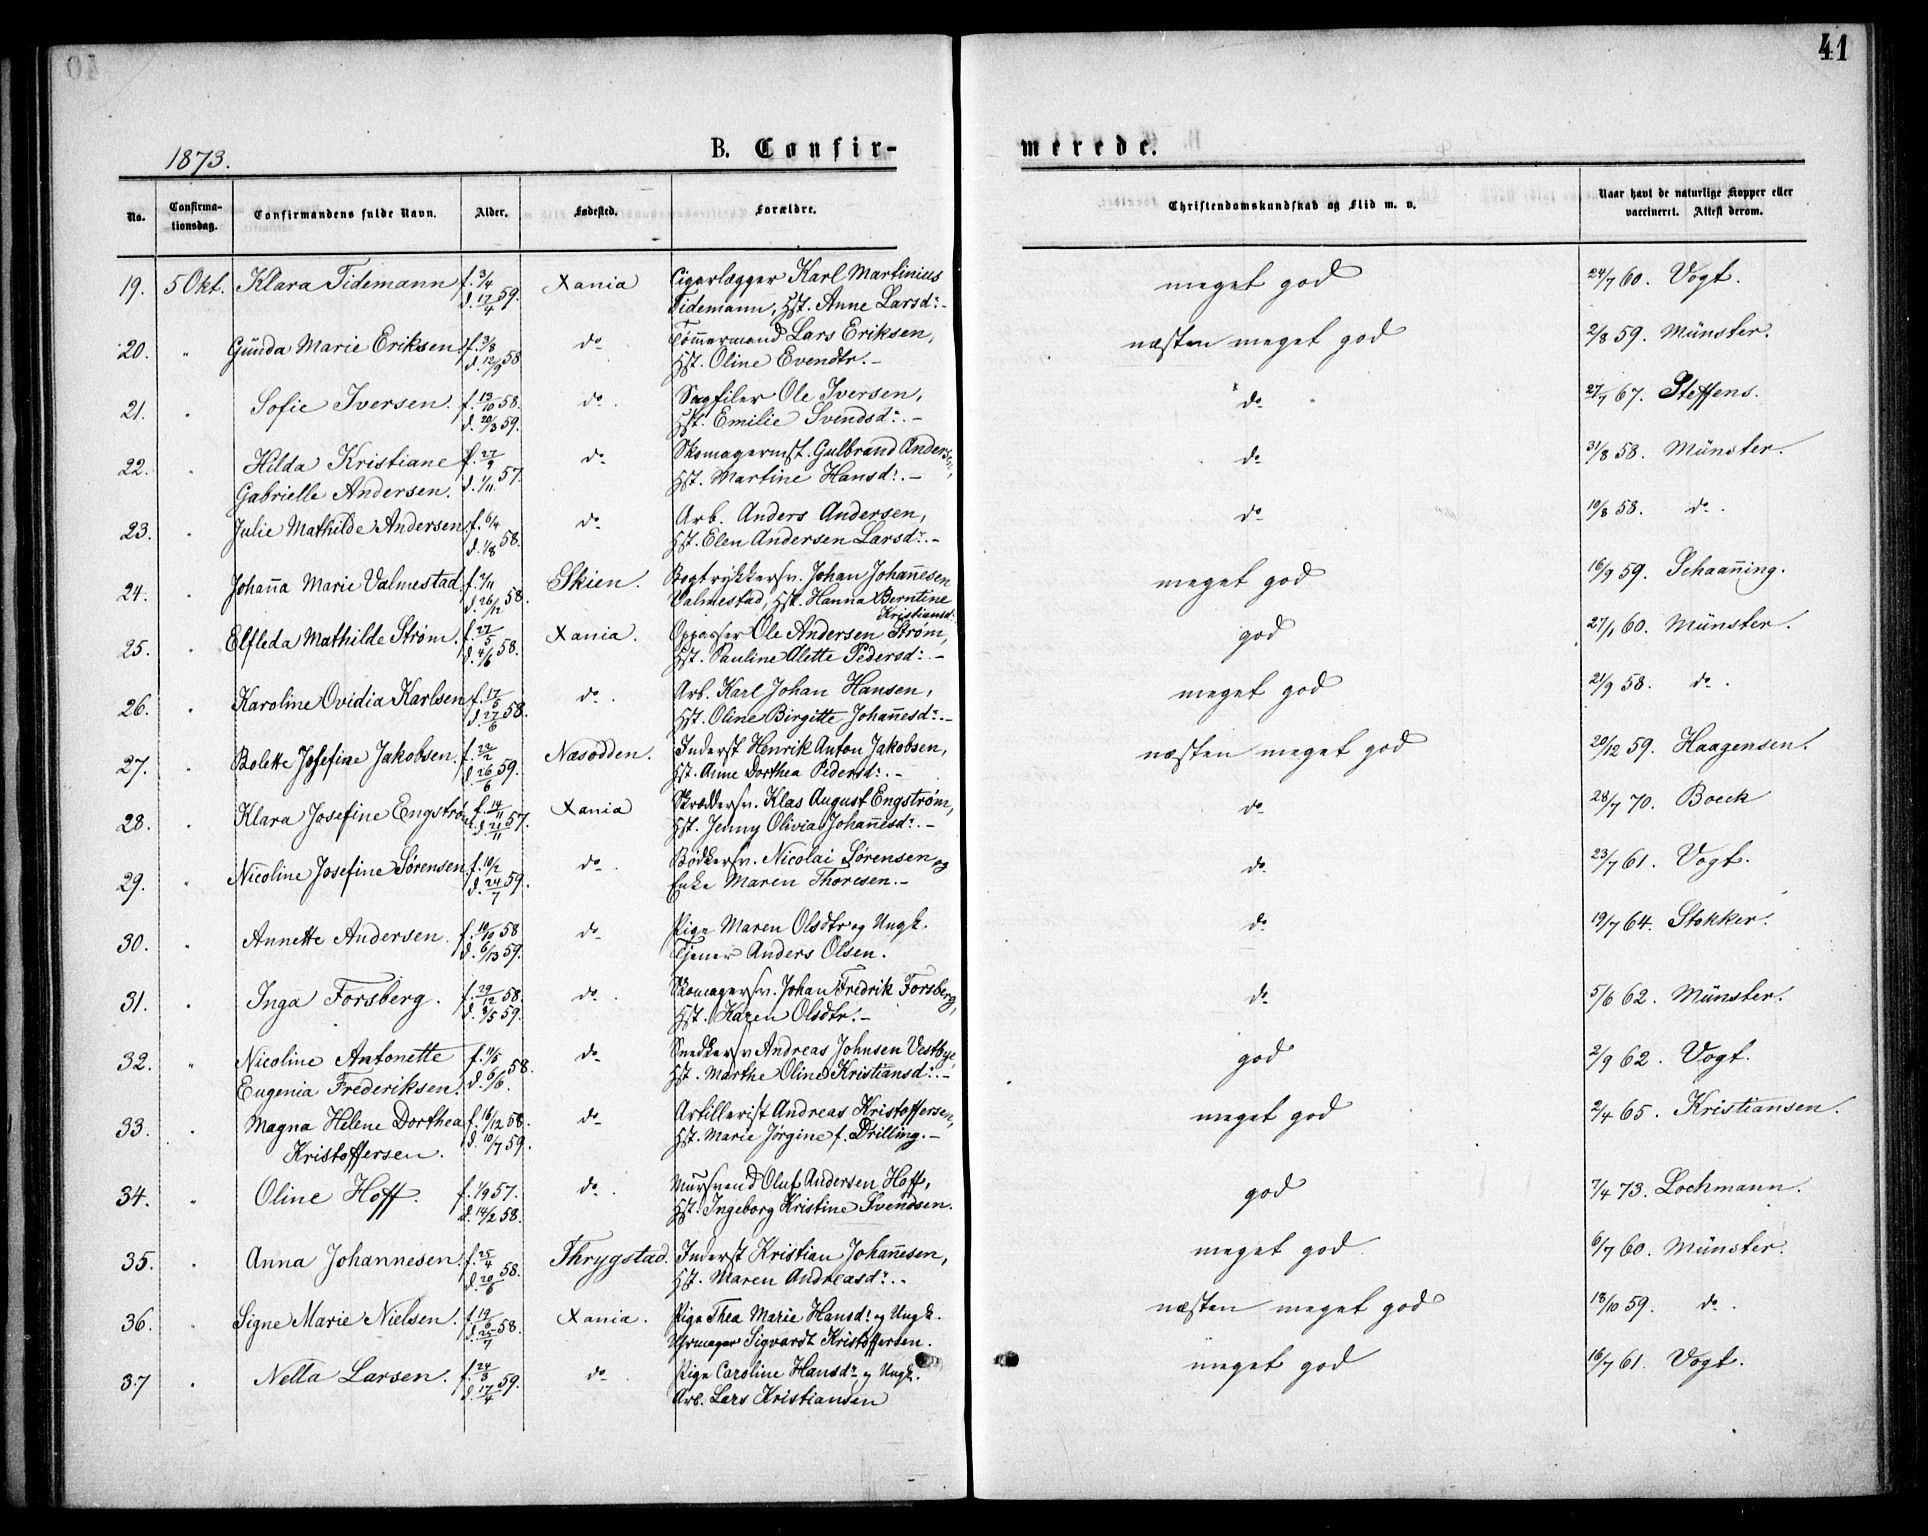 41
1873.
B. Confir-
merede.
No.
Confirma-
tionsdag.
Confirmandens fulde Navn.
Alder.
Fødested.
Forældre.
Christendomskundskab og Flid m. v.
Naar havt de naturlige Kopper eller
vaccineret. Attest derom.
19. 5 Okt. Klara Tidemann f. 3/4 d. 17/4 59. Xania Cigarlægger Karl Martinius meget god 24/7 60. Vogt.
Tidemann, Hst. Anne Larsdr.-
20. " Gunda Marie Eriksen f. 3/8 d. 12/9 58 do Tømmermand Lars Eriksen, næsten meget god 2/8 59. Münster.
Hst. Oline Evendtr.-
21. " Sofie Iversen. f. 13/10 58. d. 20/3 59. do. Sagfiler Ole Iversen, do 27/7 67. Steffens.
Hst. Emilie Svendsdr.-
22. " Hilda Kristiane f. 27/9 do Skomagermst. Gulbrand Andersen, do 31/8 58. Münster.
Gabrielle Andersen. d. 1/11 57. Hst. Martine Hansdr.-
23. " Julie Mathilde Andersen f. 6/4 d. 1/8 58. do Arb. Anders Andersen, do 10/8 58. do.
Hst. Elen Andersen Larsdr.-
24. " Johanna Marie Valmestad f. 7/11 d. 26/12 58. Skien. Bogtrykkersv. Johan Johannesen meget god 16/9 59. Schaanning.
Valmestad, Hst. Hanna Berntine
Kristiansd.
25. " Elfleda Mathilde Strøm. f. 27/5 58. Xania. Oppasser Ole Andersen Strøm, god 27/1 60. Münster.
Hst. Pauline Alette Pedersdr.-
26. " Karoline Ovidia Karlsen f. 17/5 d. 27/6 58. do. Arb. Karl Johan Hansen, meget god 21/9 58. do.
Hst. Oline Birgitte Johannesdr.-
27. " Bolette Josefine Jakobsen. f. 22/2 d. 26/6 59. Næsodden. Inderst Henrik Anton Jakobsen, næsten meget god 20/12 59. Haagensen.
Hst. Anne Dorthea Pedersdr.-
28. " Klara Josefine Engstrøm f. 14/11 d. 21/11 57. Xania Skræddersv. Klas August Engstrøm, do 28/7 70. Boeck
Hst. Jenny Olivia Johannesdr.-
29. " Nicoline Josefine Sørensen f. 10/2 d. 24/7 59. do. Bødkersv. Nicolai Sørensen og do 23/7 61. Vogt.
Enke Maren Thoresen.-
30. " Annette Andersen. f. 10/10 58 d. 6/13 59. do Pige Maren Olsdtr og Ungk. do 19/7 64. Stokker.
Tjener Anders Olsen.
31. " Inga Forsberg. f. 29/12 58. d. 8/5 59. do. Skomagersv. Johan Fredrik Forsberg, do 5/6 62. Münster.
Hst. Karen Olsdtr.-
32. " Nicoline Antonette f. 11/5 do Snedkersv Andreas Johnsen Vestbye, god 2/9 62. Vogt.
Eugenia Frederiksen. d. 6/6 58. Hst. Marthe Oline Kristiansdr.-
33. " Magna Helene Dorthea f. 16/12 58. do Artillerist Andreas Kristoffersen, meget god 2/4 65. Kristiansen.
Kristoffersen. d. 10/7 59. Hst. Marie Jørgine f. Drilling.-
34. " Oline Hoff. f. 1/9 57. do. Mursvend Oluf Andersen Hoff, god 7/4 73. Lochmann.
d. 14/2 58. Hst. Ingeborg Kristine Svendsen.
35. " Anna Johannesen. f. 25/4 d. 20/6 58. Thrygstad. Inderst Kristian Johannesen, meget god 6/7 60. Münster.
Hst. Maren Andreasdr.-
36. " Signe Marie Nielsen. f. 19/6 d. 25/7 58. Xania. Pige Thea Marie Hansdr og Ungk. næsten meget god 18/10 59. do.
Uhrmager Sigvardt Kristoffersen.
37 " Nella Larsen. f. 24/3 d. 17/4 59. do Pige Caroline Hansdr og Ungk. meget god 16/7 61. Vogt.
Arb. Lars Kristiansen